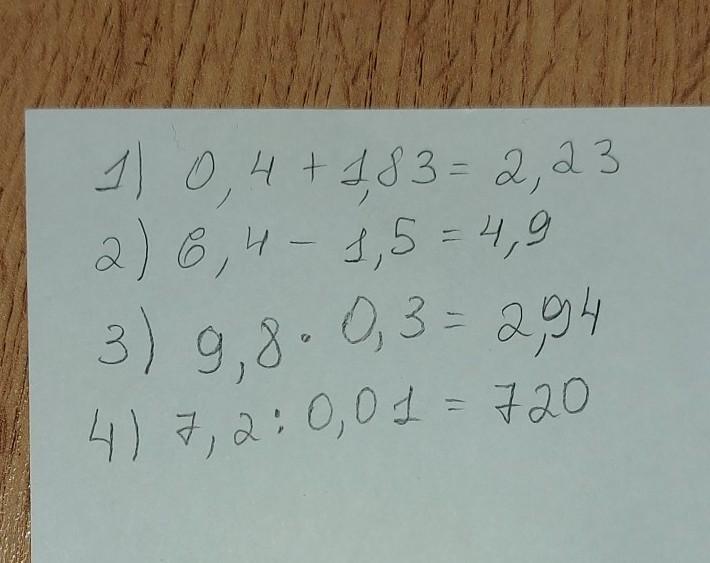 1) 0,4 + 1,83 = 2,23
2) 6,4 - 1,5 = 4,9
3) 9,8 · 0,3 = 2,94
4) 7,2 : 0,01 = 720